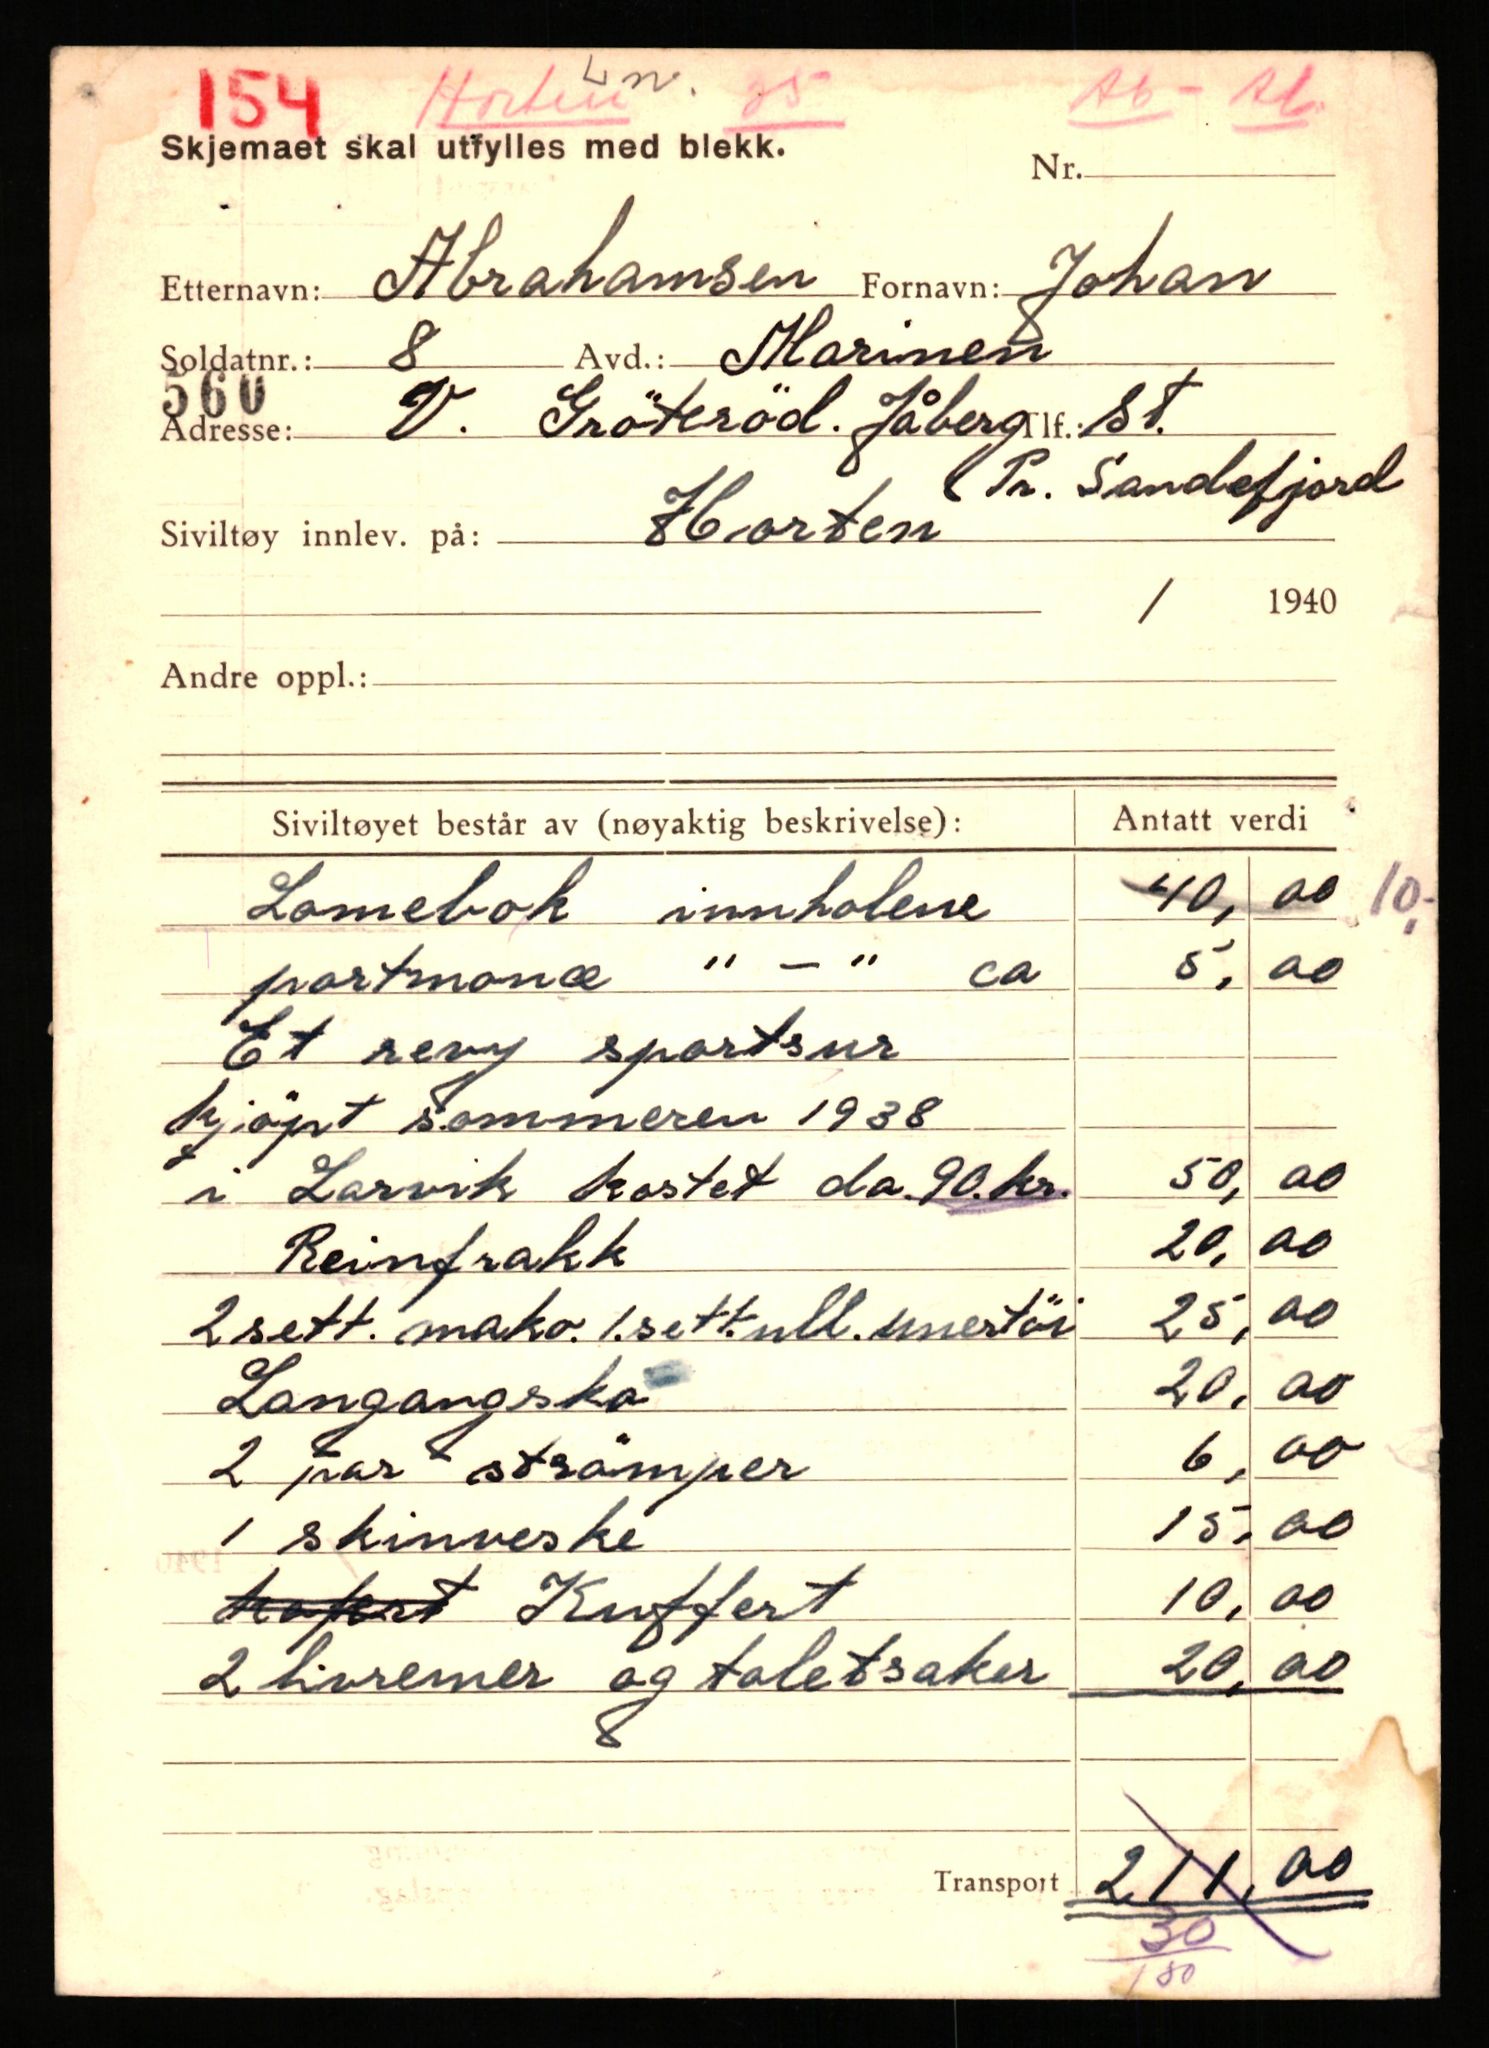 154 Horten L n. 35 Ab- Ab.
Skjemaet skal utfylles med blekk.
Nr.
Etternavn: Abrahamsen Fornavn: Johan
Soldatnr.: 8 Avd.: Marinen
560
Adresse: V. Gröteröd. Jåberg Tlf.: St.
Pr. Sandefjord
Siviltøy innlev. på: Horten
/ 1940
Andre oppl.:
Siviltøyet består av (nøyaktig beskrivelse): Antatt verdi
Lomebok innholene 40,00 10,-
portmonæ " - " ca 5,00
Et revy sportsur
kjöpt sommeren 1938
i Larvik kostet da. 90. kr. 50,00
Reinfrakk 20,00
2 sett. mako. 1. sett. ull. unertöi 25,00
Langangsko 20,00
2 par strömper 6,00
1 skinveske 15,00
kofert Kuffert 10,00
2 livremer og toletsaker 20,00
Transport 211,00
30
180